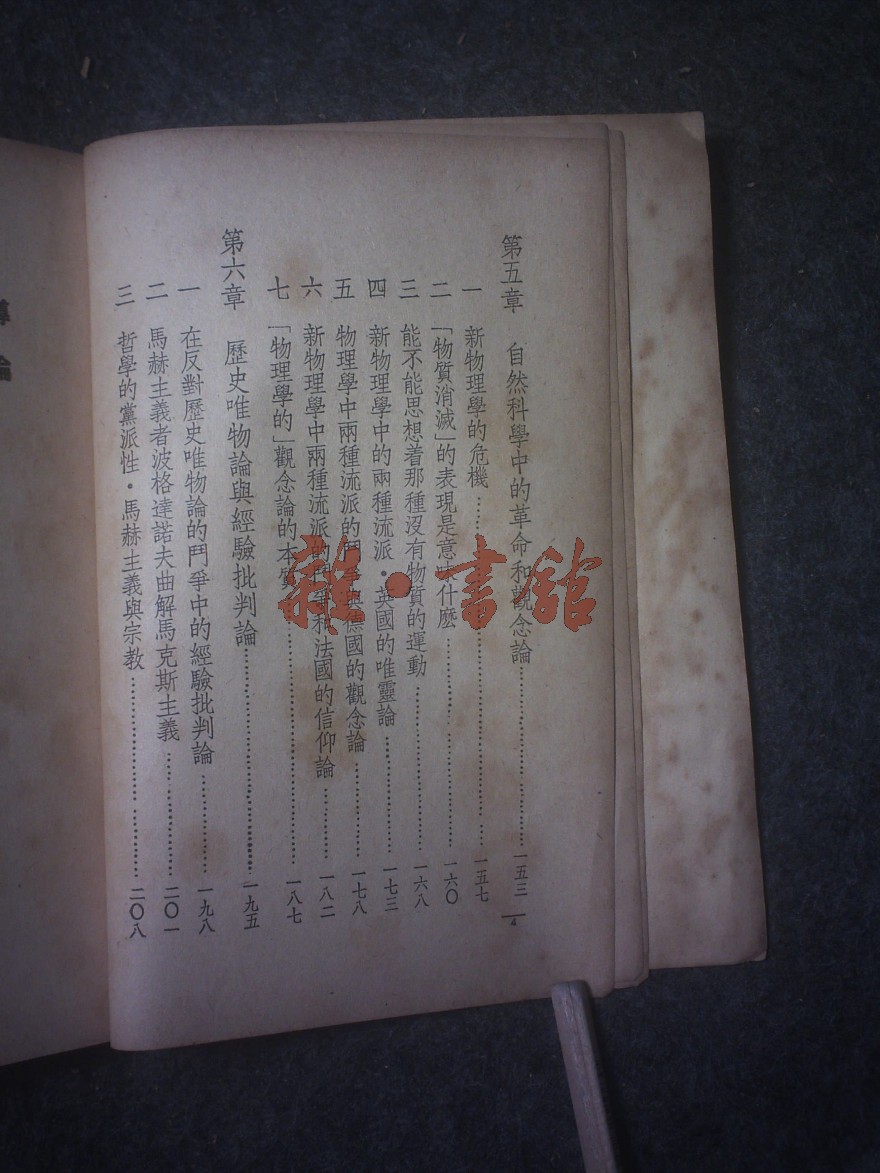 第五章 自然科學中的革命和觀念論……一五三
一 新物理學的危機……一五七
二 「物質消滅」的表現是意味什麼……一六〇
三 能不能思想着那種沒有物質的運動……一六八
四 新物理學中的兩種流派・英國的唯靈論……一七三
五 物理學中兩種流派的鬥爭與德國的觀念論……一七八
六 新物理學中兩種流派的鬥爭和法國的信仰論……一八二
七 「物理學的」觀念論的本質……一八七
第六章 歷史唯物論與經驗批判論……一九五
一 在反對歷史唯物論的鬥爭中的經驗批判論……一九八
二 馬赫主義者波格達諾夫曲解馬克斯主義……二〇一
三 哲學的黨派性・馬赫主義與宗教……二〇八
4
雜・書館